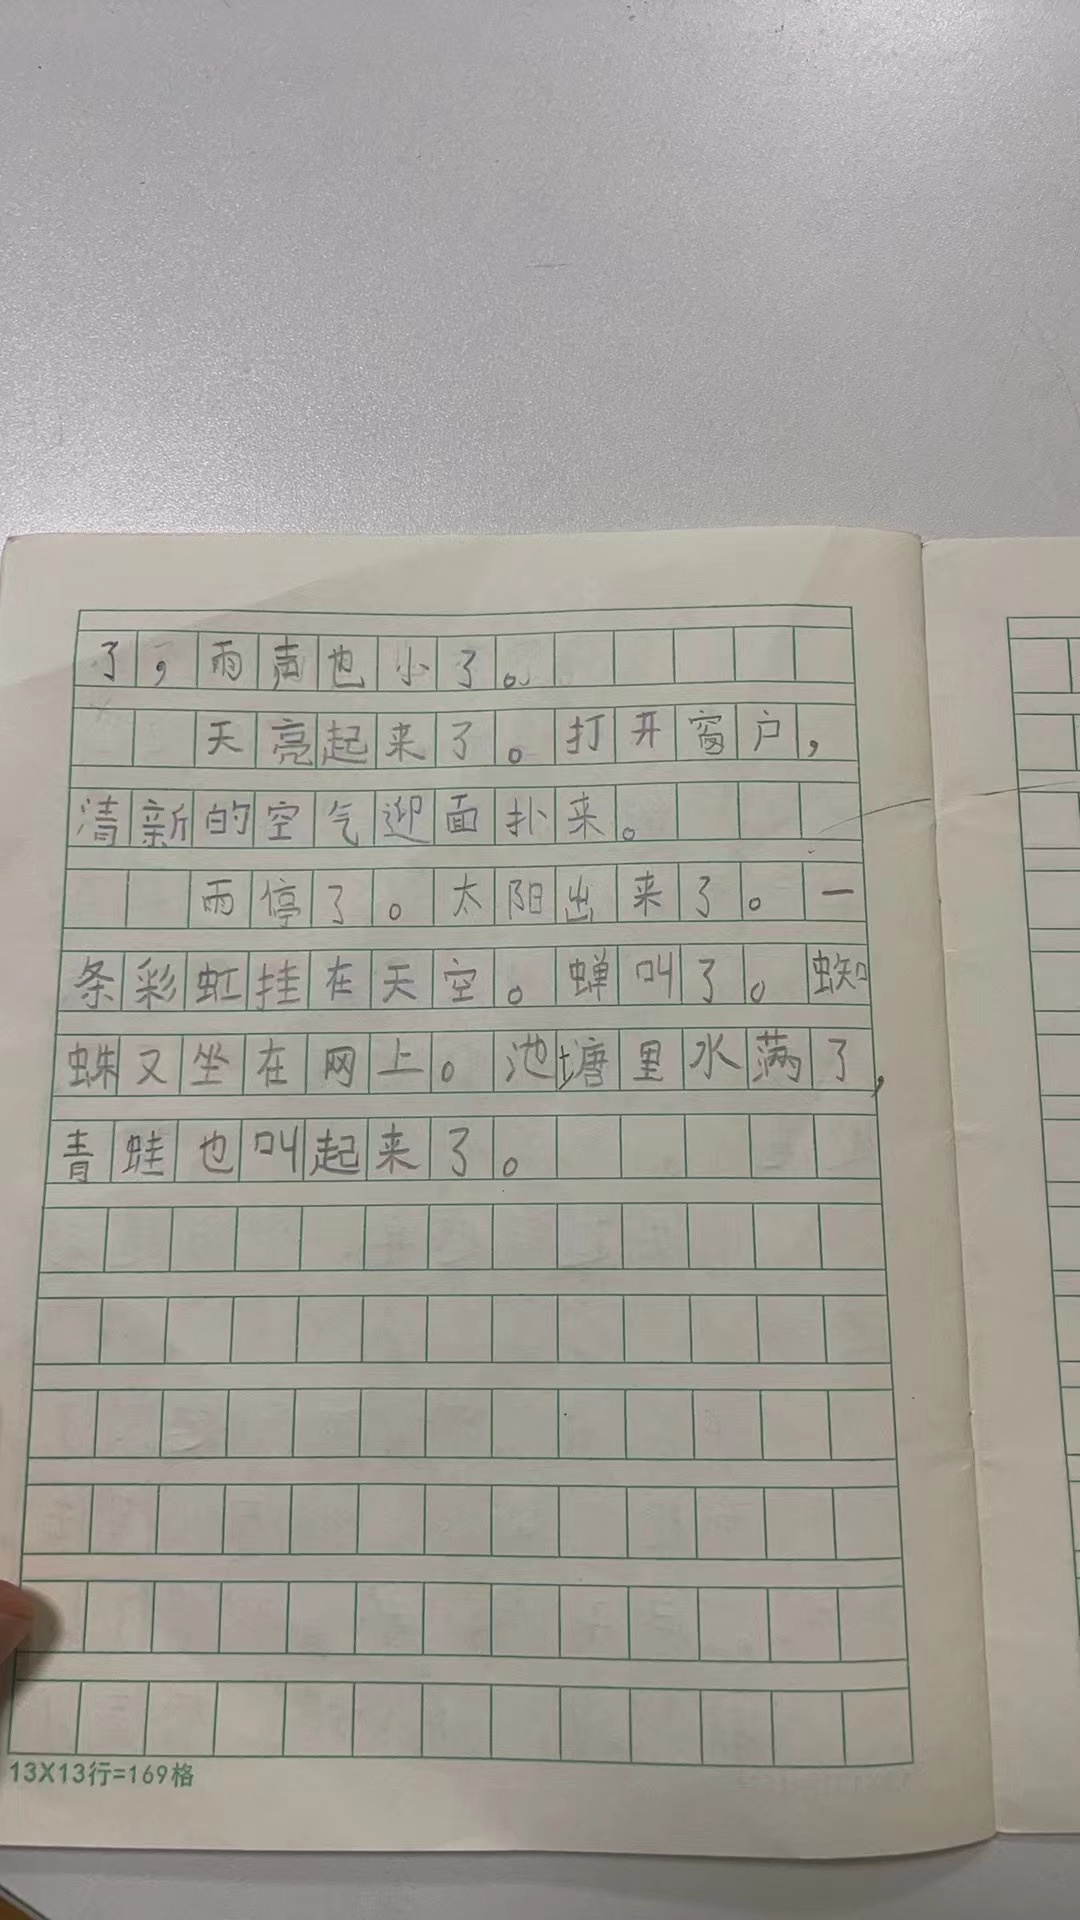 了，雨声也小了。
天亮起来了。打开窗户，
清新的空气迎面扑来。
雨停了。太阳出来了。一
条彩虹挂在天空。蝉叫了。蜘
蛛又坐在网上。池塘里水满了，
青蛙也叫起来了。
13X13行=169格